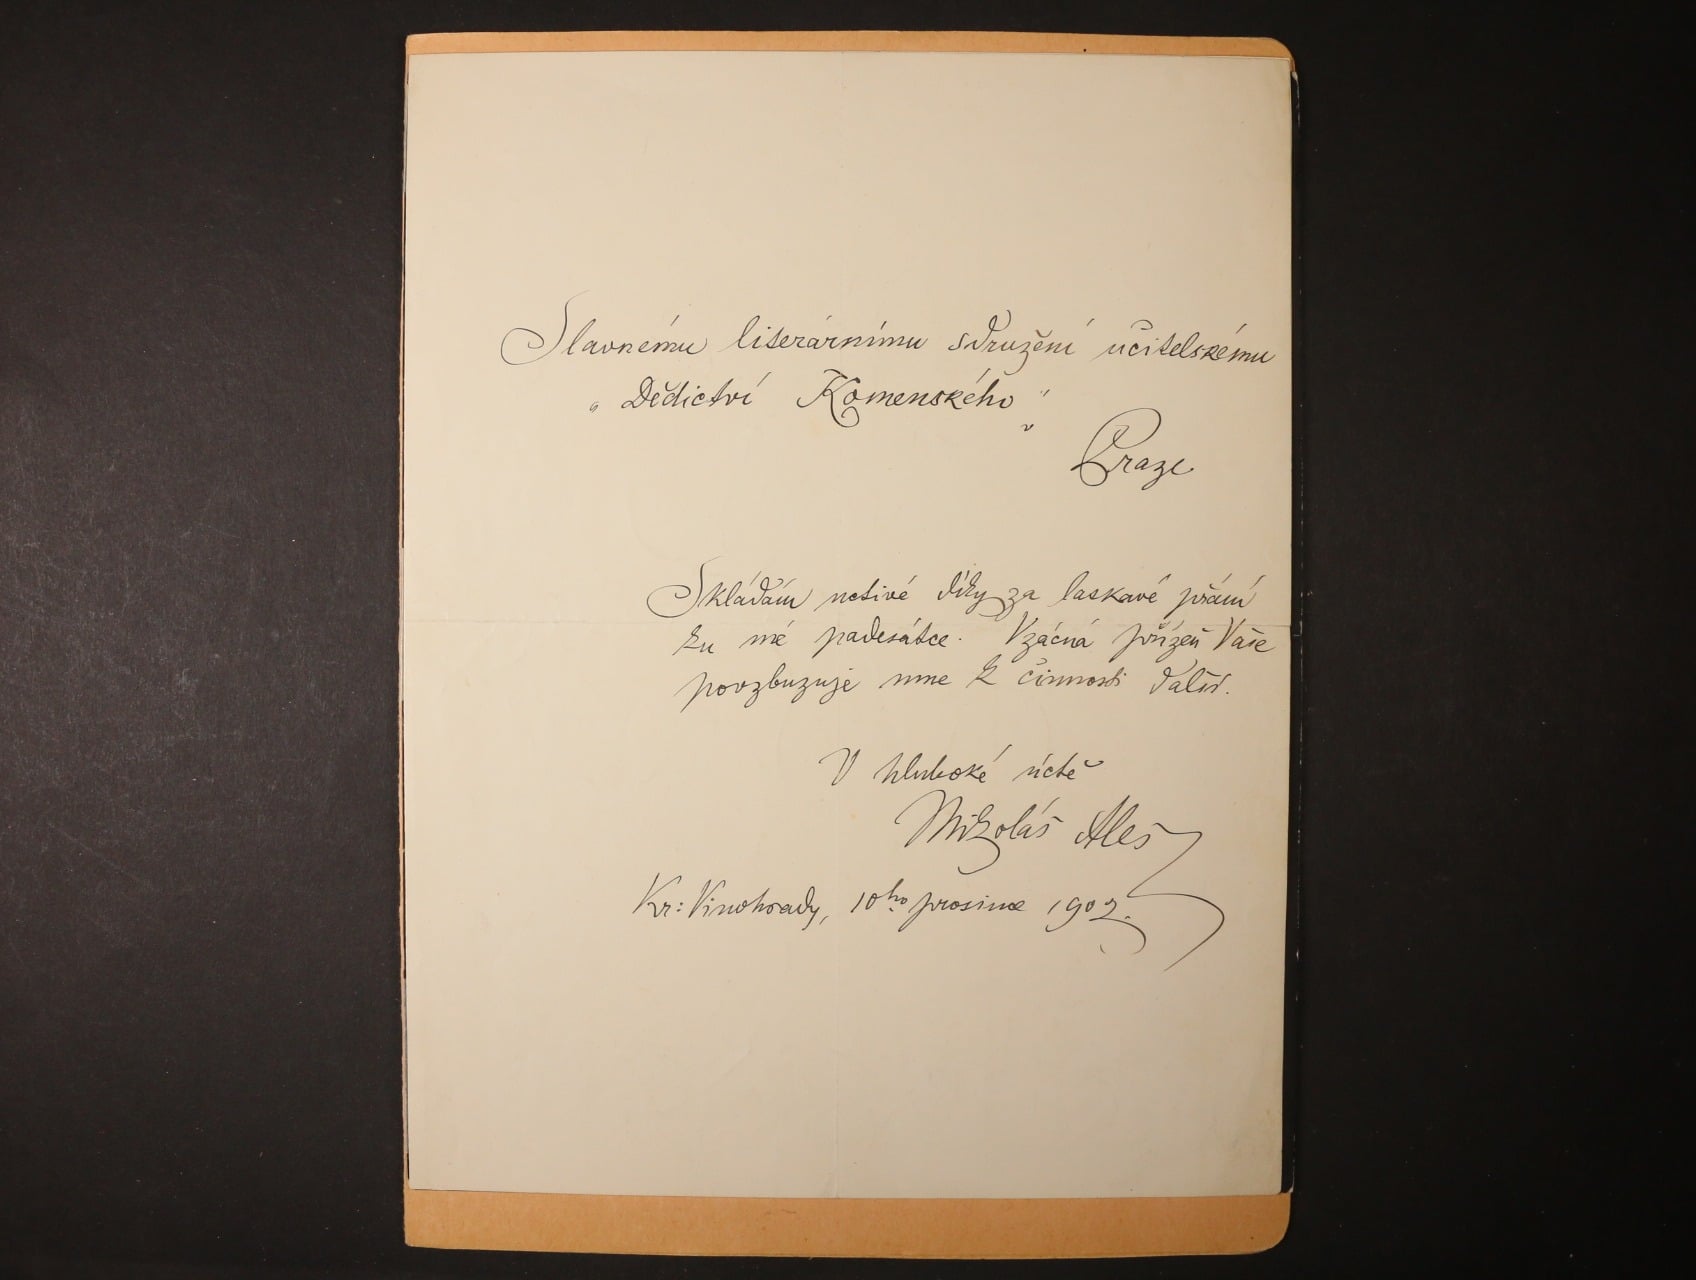 Slavnému literárnímu sdružení učitelskému
„Dědictví Komenského“
v
Praze
Skládám uctivé díky za laskavé přání
ku mé padesátce. Vzácná přízeň Vaše
povzbuzuje mne k činnosti další.
V hluboké úctě
Mikoláš Aleš
Kr: Vinohrady, 10ho prosince 1902.